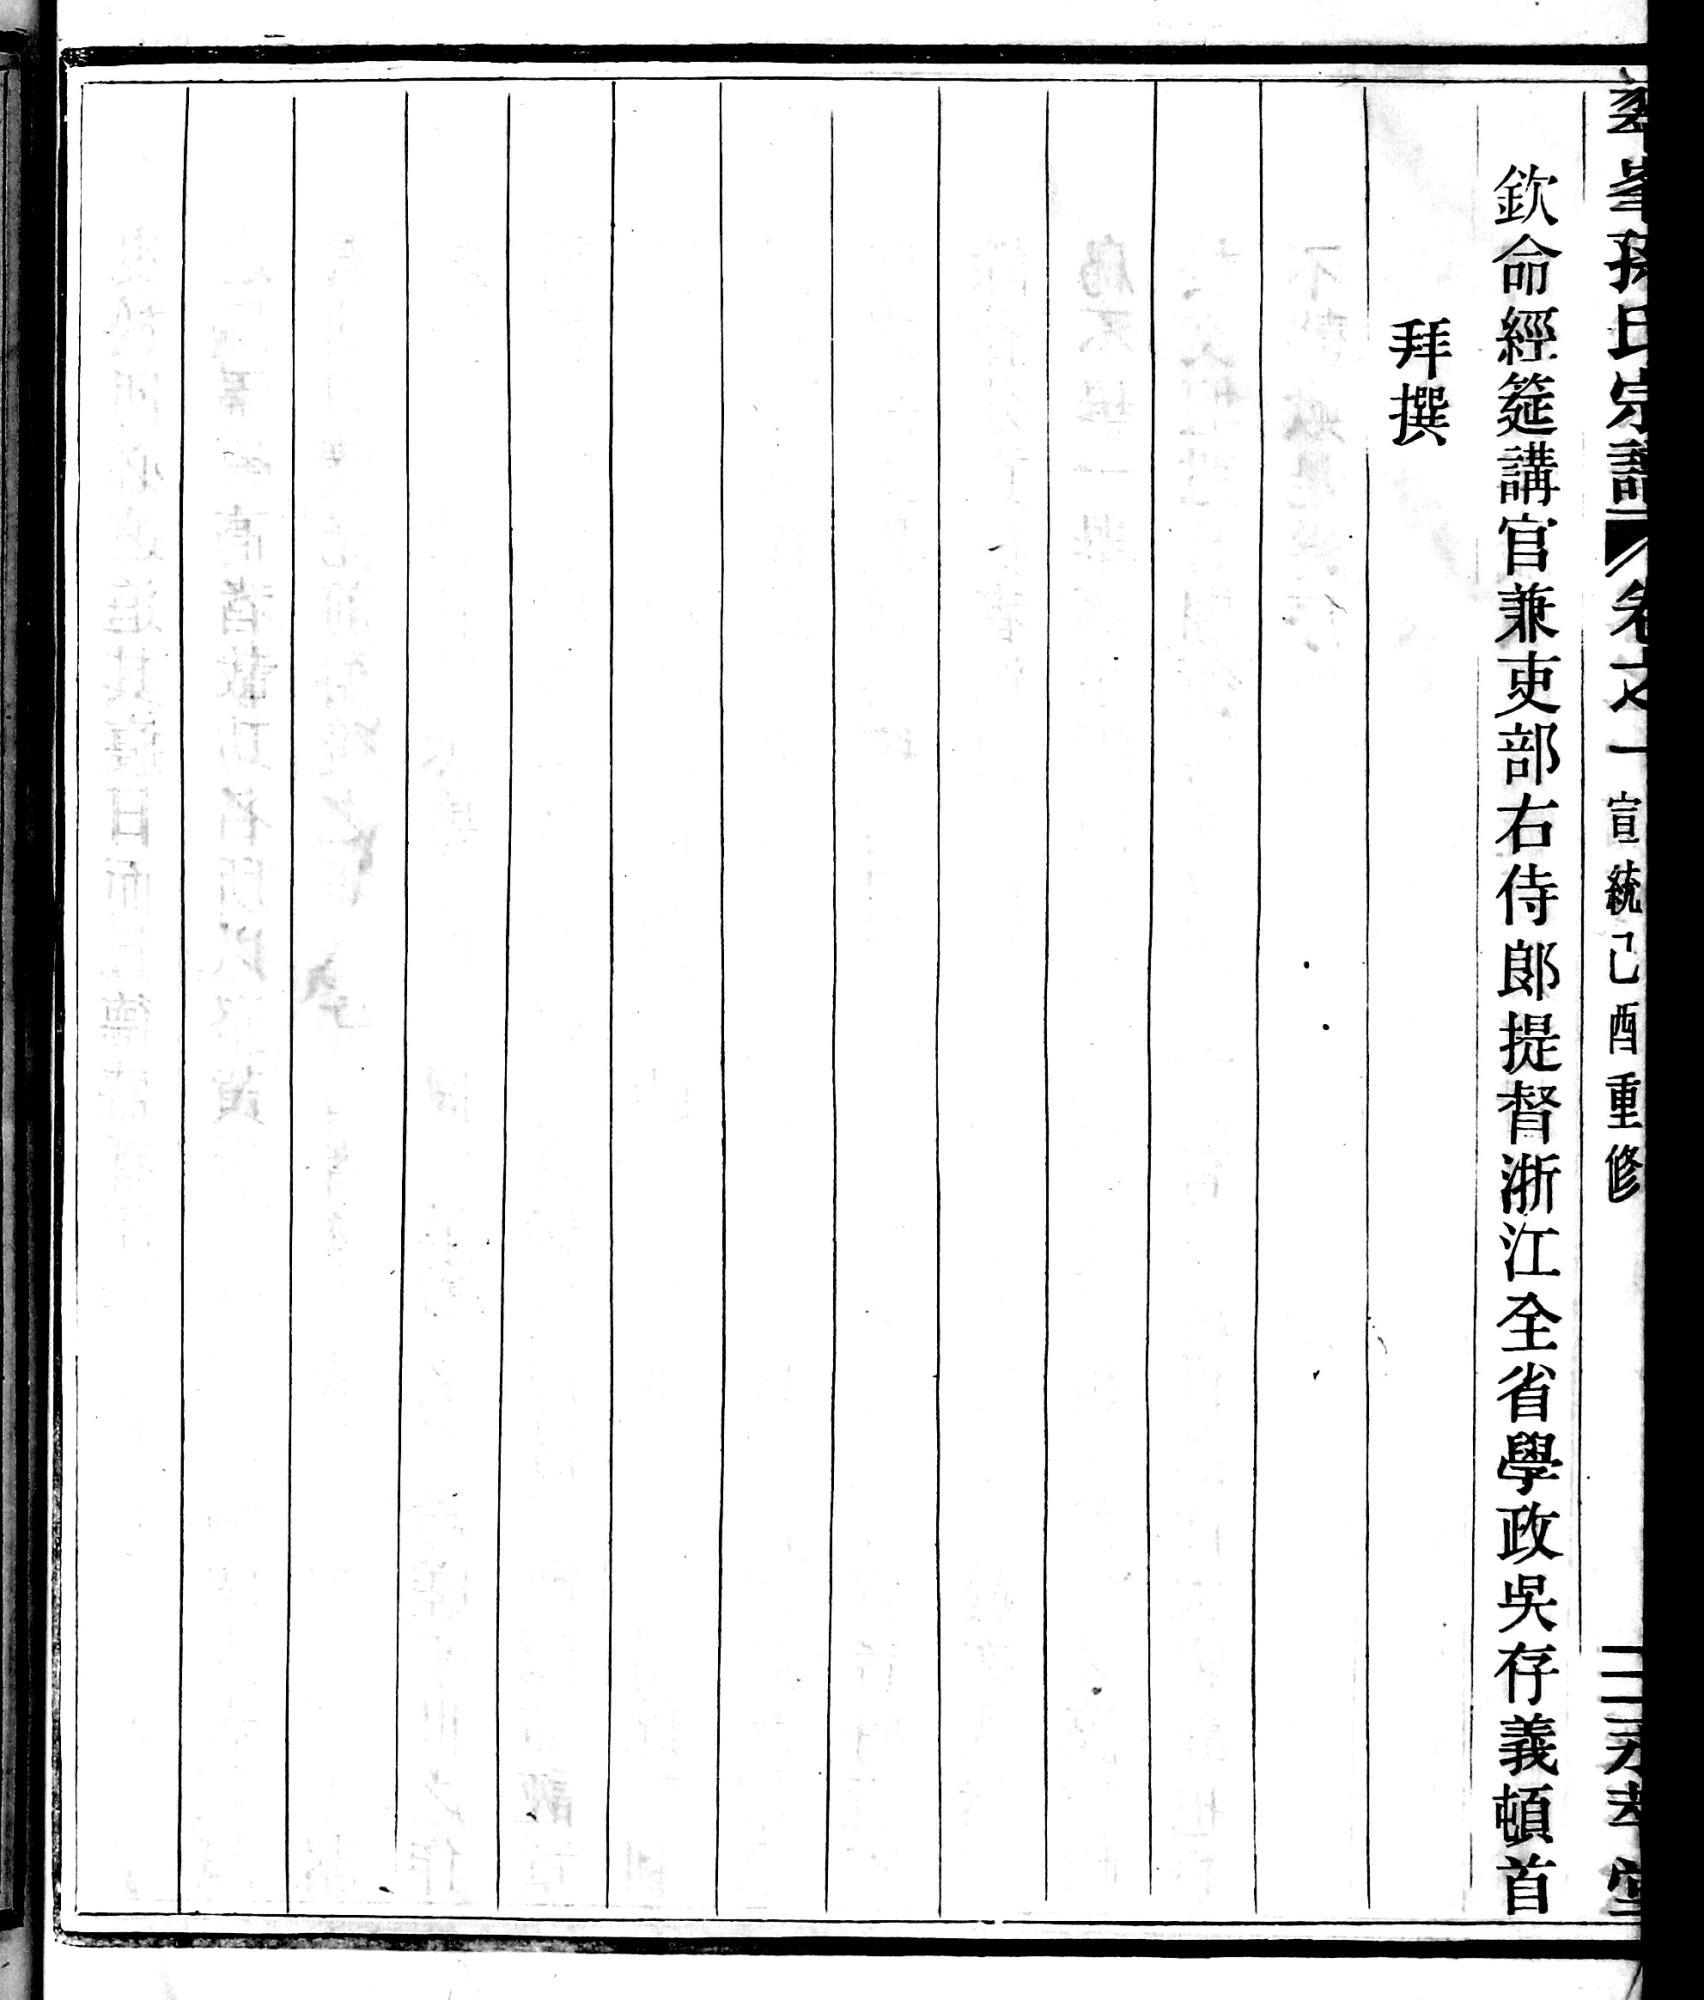 孫氏宗譜 卷之一 宣統己酉重修
欽命經筵講官兼吏部右侍郎提督浙江全省學政吳存義頓首
拜撰